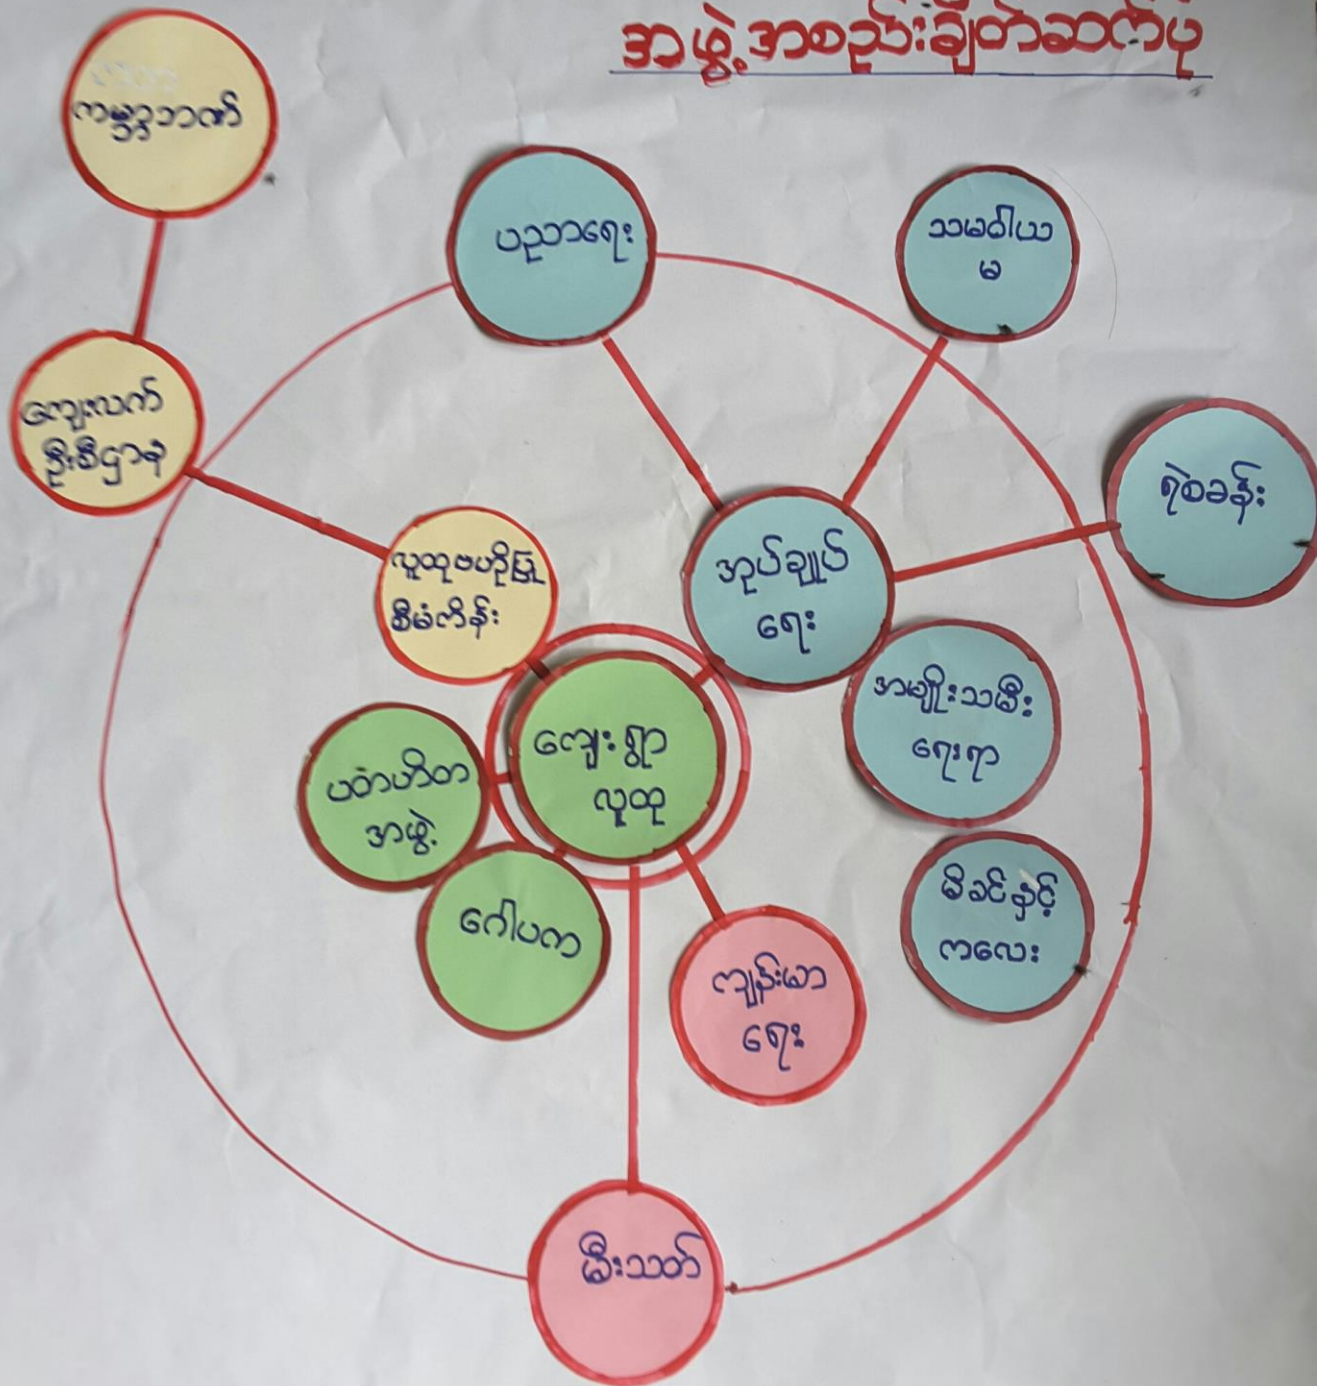 အဖွဲ့အစည်းချိတ်ဆက်ပုံ
ကမ္ဘာ့ဘဏ်
ပညာရေး
သမဝါယ
မ
ကျေးလက်
ဦးစီဌာန
ရဲစခန်း
လူထုဗဟိုပြု
စီမံကိန်း
အုပ်ချုပ်
ရေး
ကျေးရွာ
လူထု
အမျိုးသမီး
ရေးရာ
ပတံဟိတ
အဖွဲ့
ဂေါပက
မိခင်နှင့်
ကလေး
ကျန်းမာ
ရေး
မီးသတ်